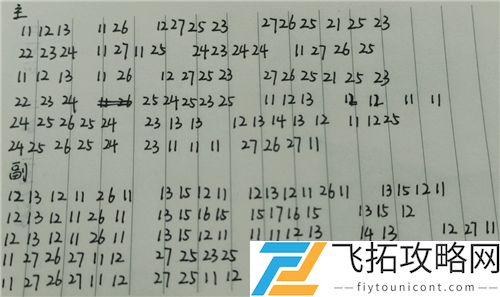 主
11 12 13 11 26 12 27 25 23 27 26 25 21 25 23
22 23 24 11 27 11 25 24 23 24 24 11 27 26 25
11 12 13 11 26 12 27 25 23 27 26 25 21 25 23
22 23 24 25 24 25 23 25 11 12 13 12 12 11 11
24 25 26 25 24 23 13 13 12 13 14 13 12 11 12 25
24 25 26 25 24 23 11 11 11 27 26 27 11
副
12 13 12 11 26 11 13 15 12 11 12 13 12 11 26 11 13 15 12 11
12 13 12 11 26 11 13 15 16 15 15 17 16 15 13 15 12
12 13 12 11 26 11 13 15 12 11 11 11 12 13 14 13 12 27 11
11 27 26 27 11 12 27 25 23 25
11 27 26 27 11 12 27 25 11 12
飞拓攻略网
fiytounicont.com